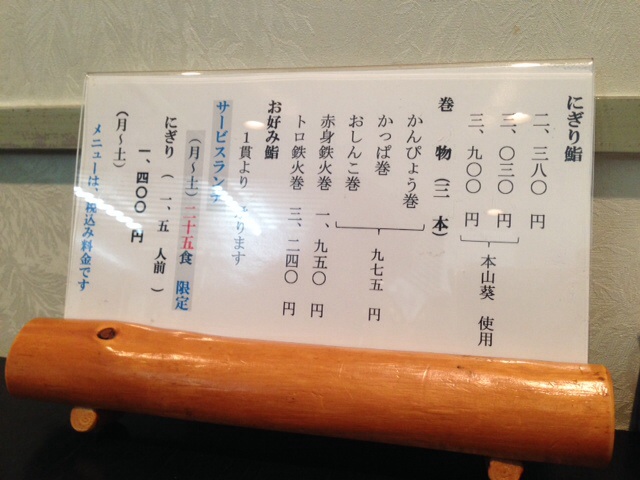 にぎり鮨
二、三八〇 円
三、〇三〇 円
三、九〇〇 円
本山葵 使用
巻 物 (三 本)
かんぴょう巻
かっぱ巻
おしんこ巻
九七五 円
赤身鉄火巻 一、九五〇 円
トロ鉄火巻 三、二四〇 円
お好み鮨
1貫より ります
サービスランチ
(月〜土) 二十五食 限定
にぎり (一、五 人前)
一、四〇〇 円
(月〜土)
メニューは、税込み料金です